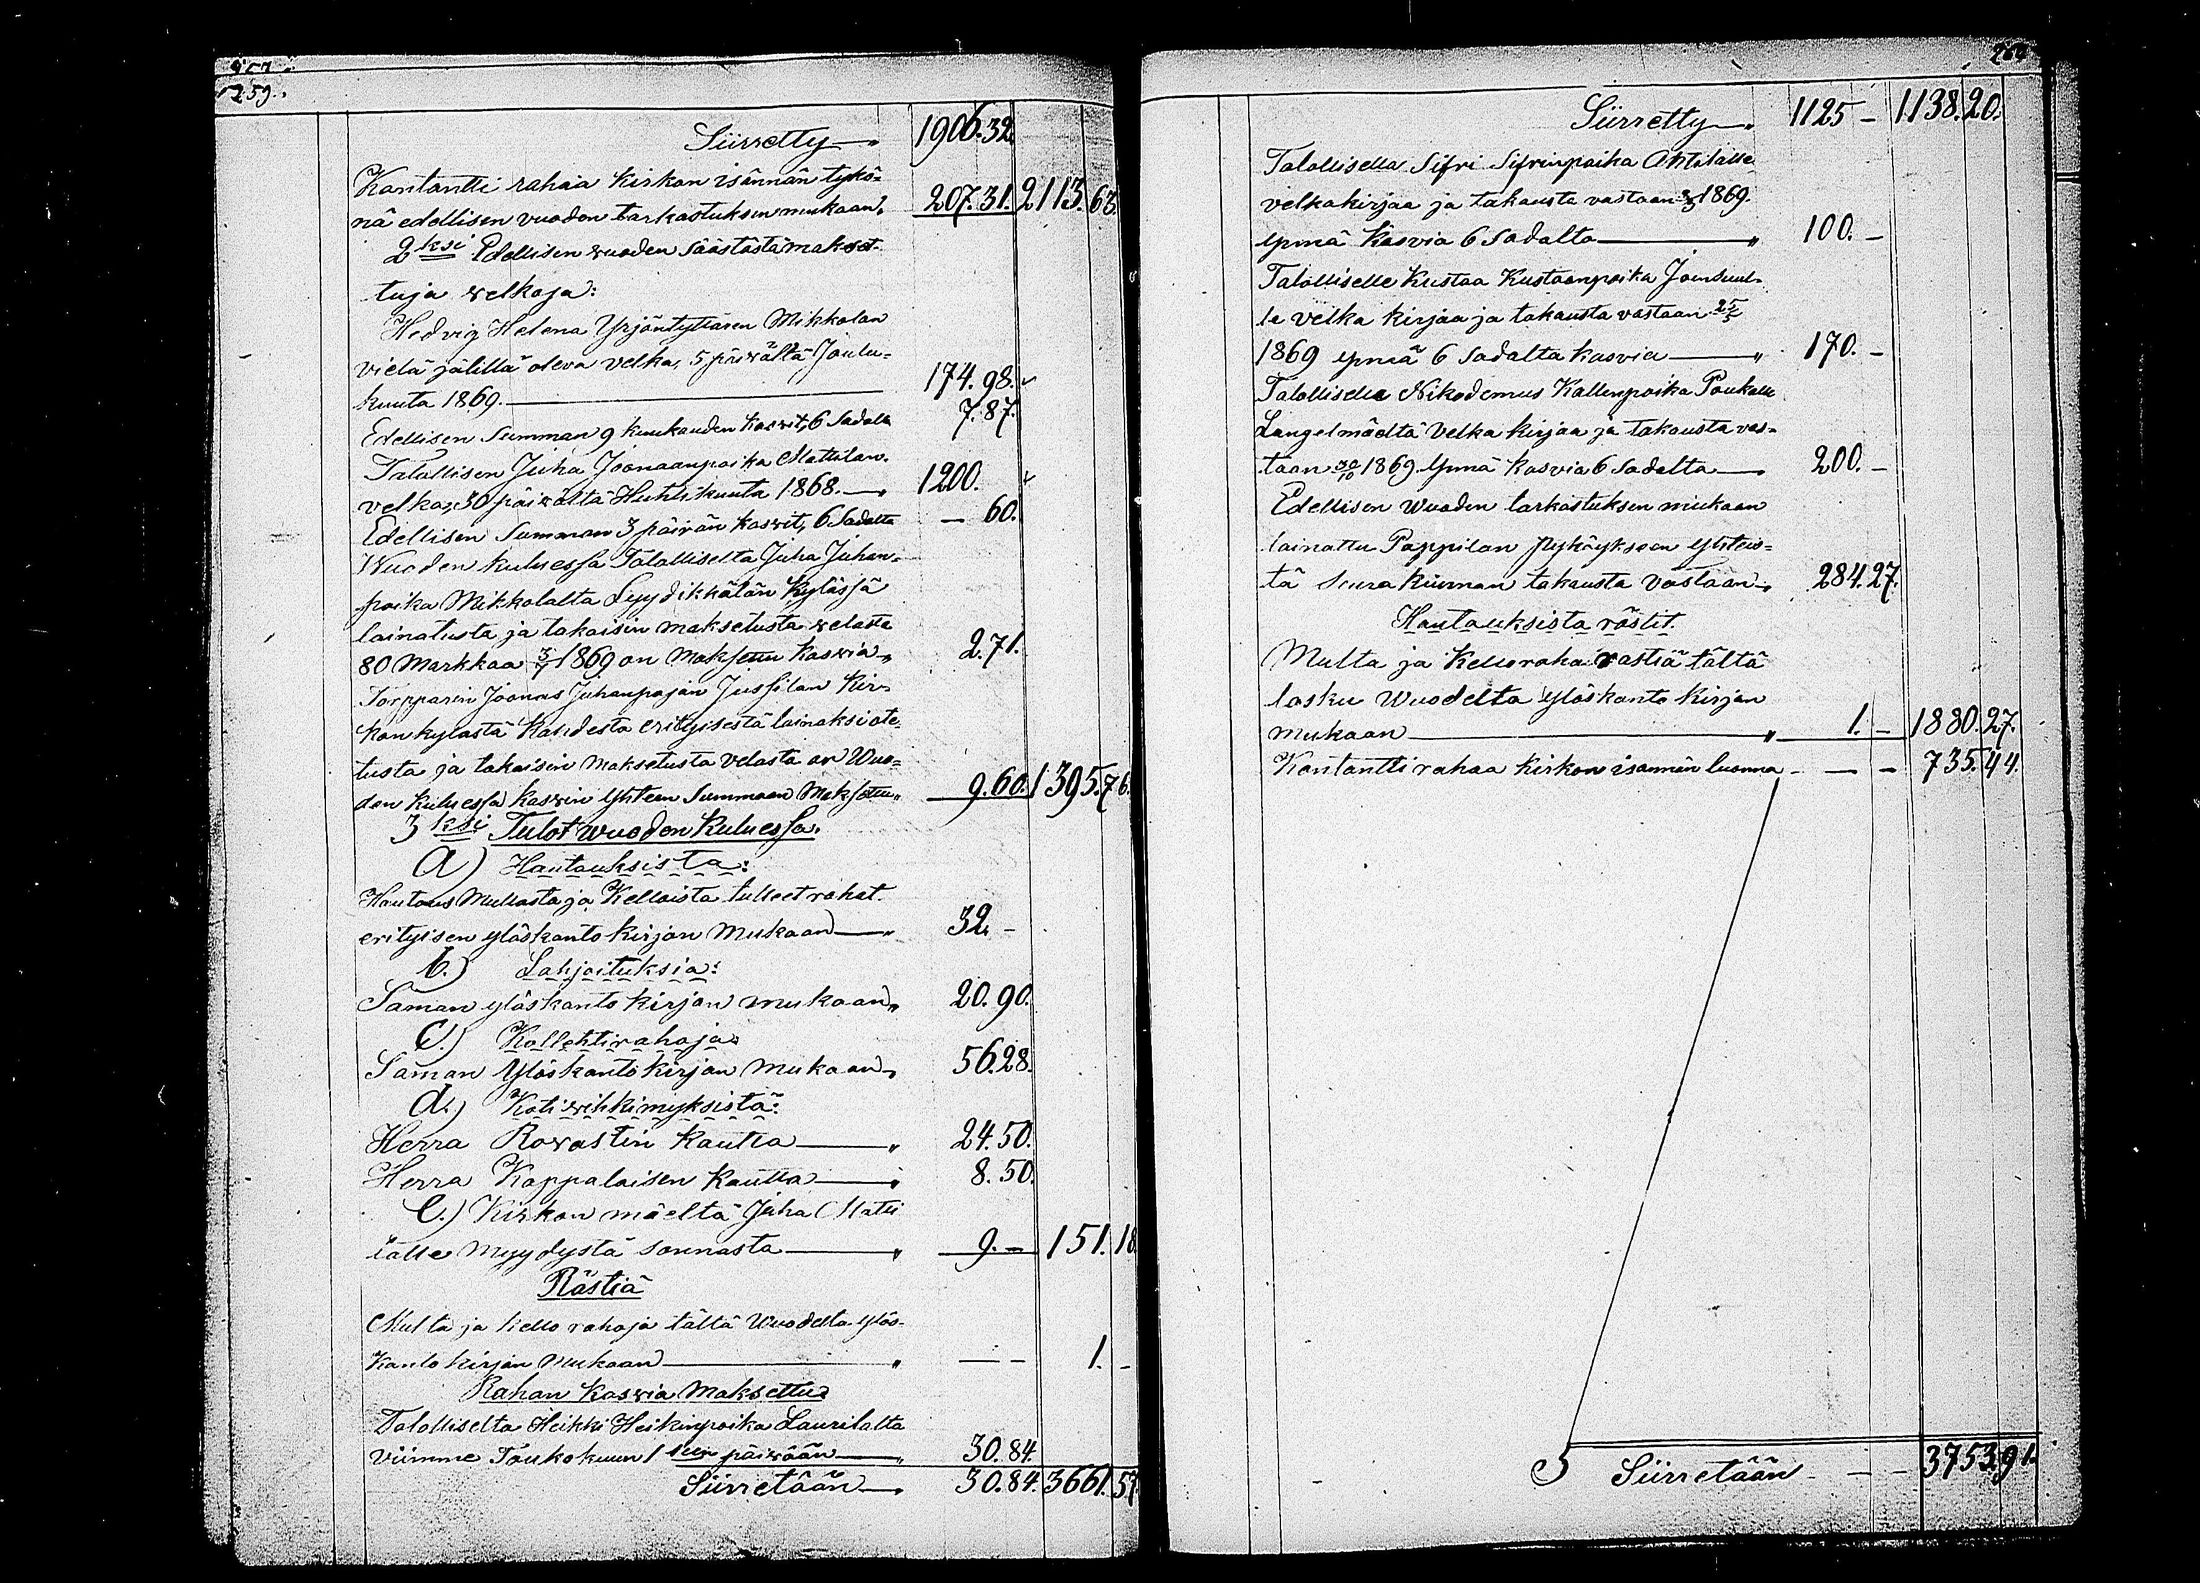 259.
Siirretty 1906.32.
Kontantti rahaa kirkon isännän tykö-
nä edellisen vuoden tarkastuksen mukaan, 207.31. 2113.63.
2ksi Edellisen wuoden säästöstä makset-
tuja welkoja:
Hedvig Helena Yrjöntyttären Mikkolan
vielä jälillä oleva velka, 5 päiwältä Joulu-
kuuta 1869. 174.98.
Edellisen Summan 9 kuukauden kaswit, 6 Sadalta 7.87.
Talollisen Juha Joonaanpoika Mattilan
velka, 30 päiwältä Huhtikuuta 1868. 1200.
Edellisen Summan 3 päivän kaswit, 6 Sadalta — 60.
Wuoden kuluessa Talolliselta Juha Juhan-
poika Mikkolalta Lyydikkälän Kylässä
lainatusta ja takaisin maksetusta welasta
80 Markkaa 1869 on Maksettu Kaswia 2.71.
Torpparin Joonas Juhanpojan Jussilan Kir-
konkylästä Kahdesta erityisestä lainaksi ote-
tusta ja takaisin Maksetusta velasta on Wuo-
den Kuluessa Kaswia yhteen Summaan Maksettu 9.60. 1395.76.
3ksi Tulot wuoden Kuluessa.
a) Hautauksista:
Hautaus Mullasta ja Kelloista tulleet rahat
erityisen ylöskanto kirjan Mukaan 32 -
b.) Lahjoituksia:
Saman ylöskanto kirjan mukaan 20.90.
C.) Kollehtirahoja
Saman Ylöskanto kirjan Mukaan 56.28.
d.) Kotiwihkimyksistä:
Herra Rovastin Kautta 24.50.
Herra Kappalaisen Kautta 8.50
e.) Kirkon mäeltä Juha Matti
lälle Myydystä sonnasta 9.— 151.18
Rästiä
Multa ja kello rahoja tältä Wuodelta ylös-
kanto kirjan Mukaan — — 1. -
Rahan Kaswia Maksettu
Talolliselta Heikki Heikinpoika Laurilalta
viimme Toukokuun 1sen päiwään 30.84.
Siirretään 30.84. 3661.57
Siirretty 1125 — 1138.20.
Talollisella Sifri Sifrinpoika Ahtilalle
velkakirjaa ja takausta vastaan 1869.
ynnä Kasvia 6 Sadalta 100. —
Talolliselle Kustaa Kustaanpoika Jonsuul-
le velka kirjaa ja takausta vastaan
1869 ynnä 6 Sadalta kasvia 170. —
Talollisella Nikodemus Kallenpoika Poukalle
Längelmäeltä Velka kirjaa ja takausta vas-
taan 30/10 1869 Ynnä kasvia 6 Sadalta 200. —
Edellisen Wuoden tarkastuksen mukaan
lainattu Pappilan yhteis-
tä seurakunnan takausta vastaan 284.27.
Hautauksista rästit.
Multa ja Kelloraha rastiä tältä
lasku Wuodelta ylöskanto kirjan
mukaan 1. — 1880.27.
Kontantti rahaa kirkon isännän luonna — — 735.44.
Siirretään — — 3753.91.